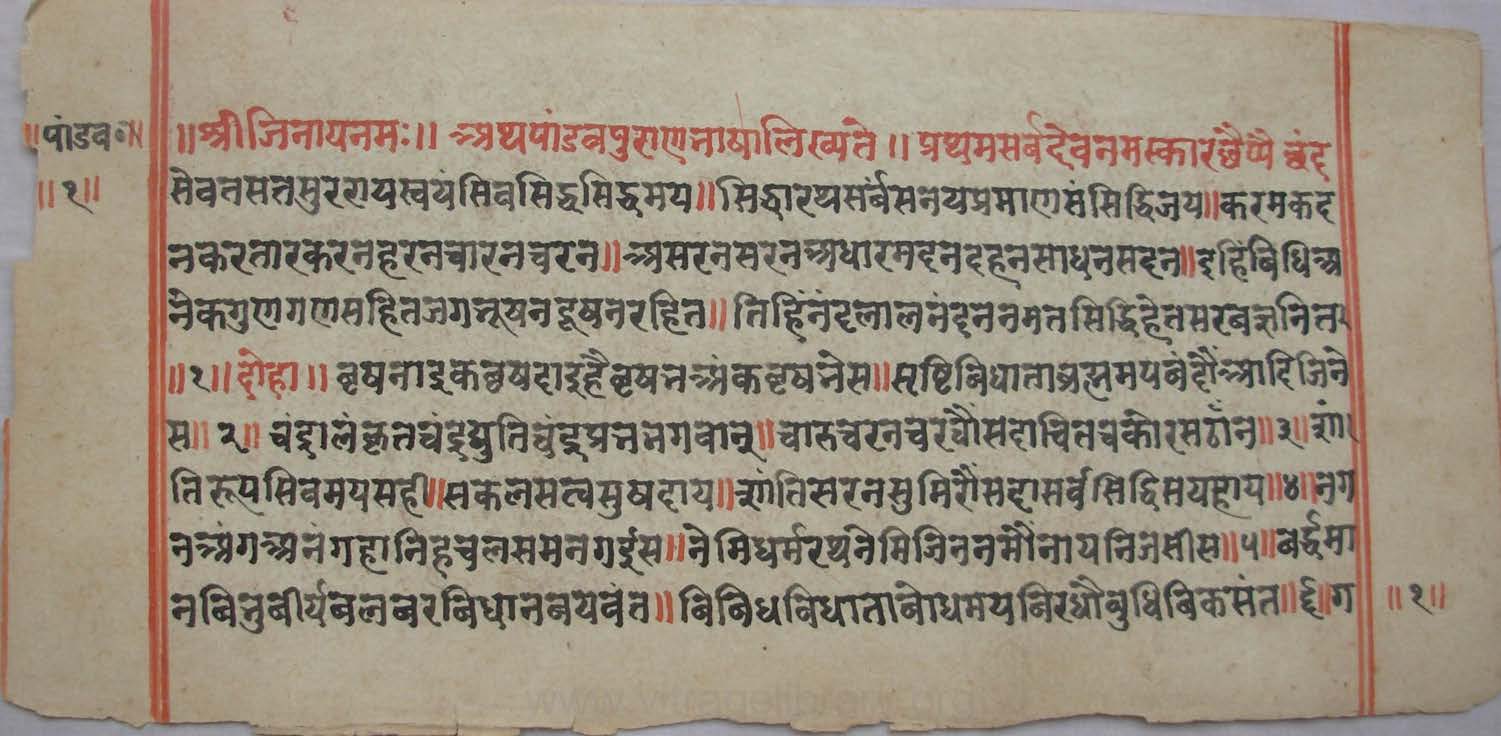 ॥पांडव॰॥ ॥श्रीजिनायनमः॥ अथपांडवपुराणभाषालिख्यते॥ प्रथमसर्वदेवनमस्कारछप्पै छंद
॥१॥ सेवतसतसुररायस्वयंसिवसिद्धसिद्धमय॥ सिद्धारथसर्वसनयप्रमाणसंसिद्धिजय॥करमकद
नकरतारकरनहरनचारनचरन॥असरनसरनअधारमदनदहनसाधनसदन॥इहिंविधिअ
नेकगुणगणसहितजगभूषनदूषनरहित॥ तिहिंनंदलालनंदननमतसिद्धिहेतसरबज्ञनित
॥१॥दोहा॥ वृषभनाइकवृषदाइहैवृषभअंकवृषभेस॥सृष्टिविधाताब्रह्ममयबंदौंआदिजिने
स॥२॥ चंद्रालंकृतचंद्रद्युतिचंद्रप्रभभगवान्॥चारुचरनचरचौंसदाचितचकोरसठांन॥३॥शां
तिरूपसिवमयसही॥सकलसत्वसुषदाय॥शांतिसरनसुमिरौंसदासर्वसिद्धिसयहाय॥४॥नग
नअंगअनंगहानिहचलसमनगईस॥नेमिधर्मरथनेमिजिननमौंनायनिजसीस॥५॥बर्द्धमा
नबिनुबीर्यबलबरबिधानबयवंत॥बिबिधबिधाताबोधमयबिरधौबुधिबिकसंत॥६॥ग ॥१॥